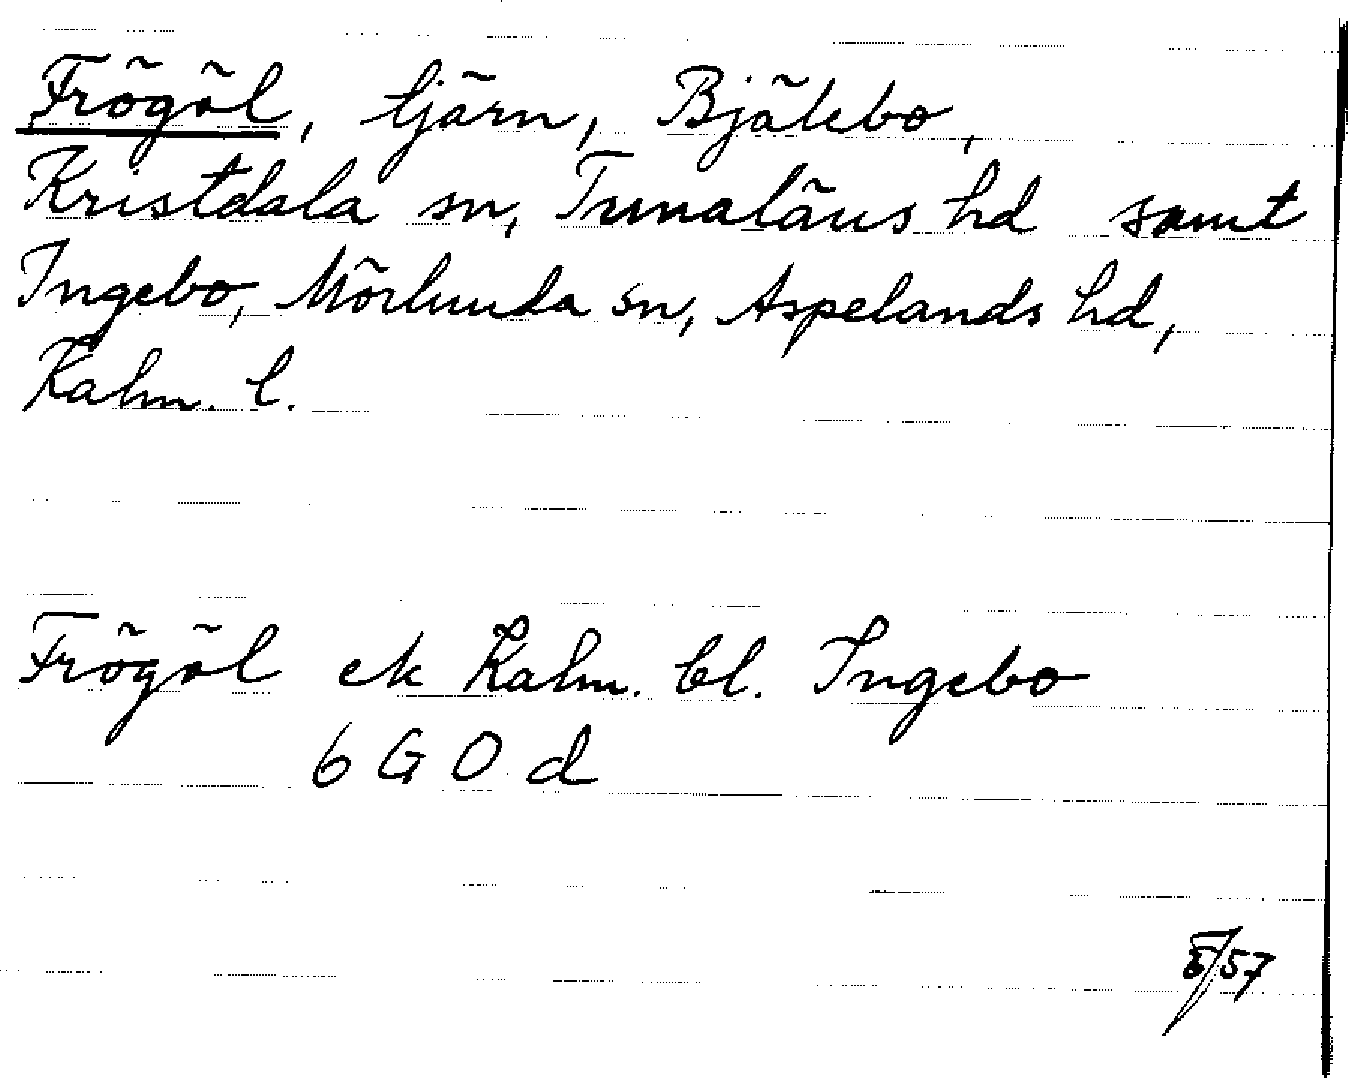 Frögöl, tjärn, Bjälebo,
Kristdala sn, Tunaläns hd samt
Ingebo, Mörlunda sn, Aspelands hd,
Kalm. l.
Frögöl ek Kalm. bl. Ingebo
6 G O d
/57